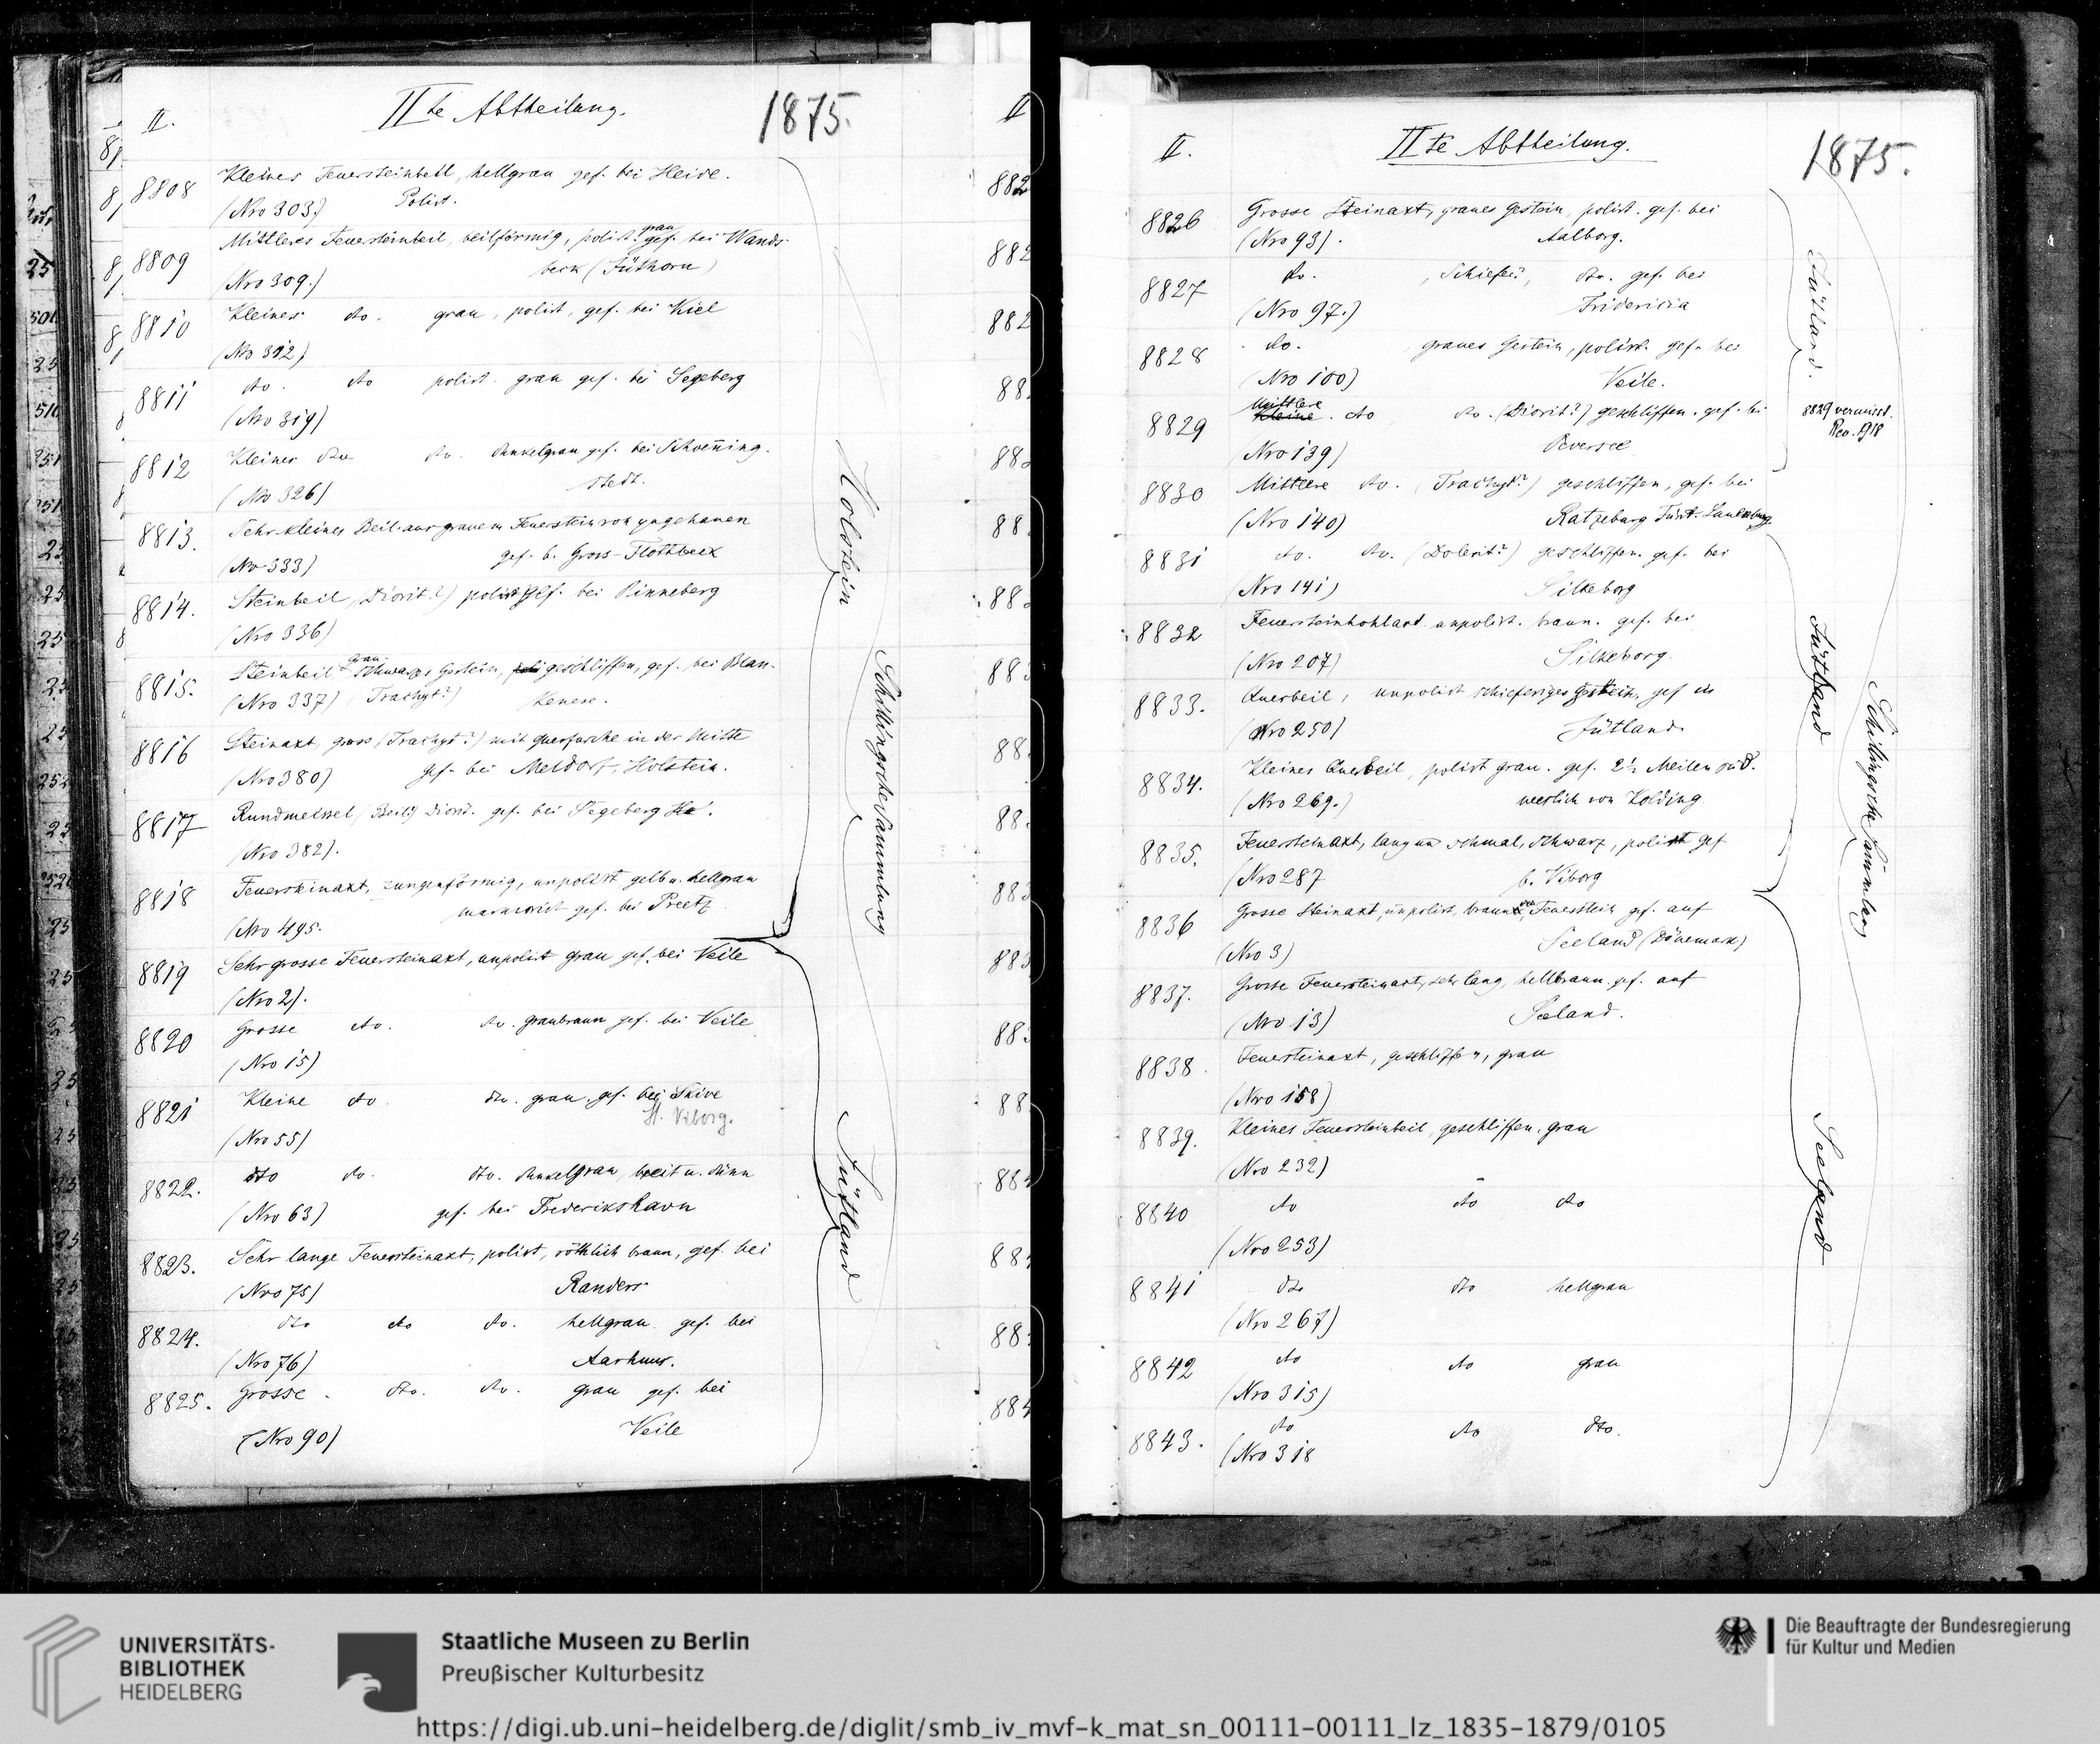 II.
IIte Abtheilung.
1875.
8808
Kleines Feuersteinbeil, hellgrau gef. bei Heide.
(Nro 303.)
Polirt.
8809
Mittleres Feuersteinbeil, beilförmig, polirt. grau gef. bei Wands-
(Nro 309.)
beck (Jüthorn)
8810
Kleines do. grau, polirt, gef. bei Kiel
(Nro 312)
8811
do. do polirt. grau gef. bei Segeberg
(Nro 319)
8812
Kleines dto do. dunkelgrau gef. bei Schoenning-
(Nro 326)
stedt.
8813.
Sehr kleines Beil aus grauem Feuerstein roh zugehauen
(Nro 333)
gef. b. Gross-Flottbeck
8814.
Steinbeil (Diorit?) polirt gef. bei Pinneberg
(Nro 336)
8815.
Steinbeil, grau-schwarzes Gestein, geschliffen, gef. bei Blan-
(Nro 337) (Trachyt?)
kenese.
8816
Steinaxt, gross (Trachyt?) mit Querfurche in der Mitte
(Nro 380)
gef. bei Meldorf, Holstein.
8817
Rundmeissel (Beil?) Diorit. gef. bei Segeberg
(Nro 382).
8818
Feuersteinaxt, zungenförmig, unpolirt gelb u. hellgrau
marmorirt gef. bei Preetz
(Nro 495.
Holstein
Schillingsche Sammlung
8819
Sehr grosse Feuersteinaxt, unpolirt grau gef. bei Veile
(Nro 2).
8820
Grosse do. do. graubraun gef. bei Veile
(Nro 15)
8821
Kleine do. do. grau, gef. bei Skive
St. Viborg.
(Nro 55)
8822.
dto do. dto. dunkelgrau, breit u. dünn
(Nro 63)
gef. bei Frederikshavn
8823.
Sehr lange Feuersteinaxt, polirt, röthlich braun, gef. bei
(Nro 75)
Randers
8824.
dto do do. hellgrau gef. bei
(Nro 76)
Aarhuus.
8825.
Grosse. dto. do. grau gef. bei
(Nro 90)
Veile
Jütland
II.
IIte Abtheilung.
1875.
8826
Grosse Steinaxt, graues Gestein, polirt. gef. bei
(Nro 93).
Aalborg.
8827
do. , Schiefer?, dto. gef. bei
(Nro 97.)
Fridericia
8828
do. , graues Gestein, polirt. gef. bei
(Nro 100)
Veile.
8829
Mittlere
Kleine. do do. (Diorit?) geschliffen. gef. bei
(Nro 139)
Oeversee
Jütland.
8829 vermisst.
Rev. 1918
8830
Mittlere do. (Trachyt?) geschliffen, gef. bei
(Nro 140)
Ratzeburg Fürst. Lauenburg
8831
do. do. (Dolerit?) geschliffen. gef. bei
(Nro 141)
Silkeborg
8832
Feuersteinhohlaxt unpolirt. braun. gef. bei
(Nro 207)
Silkeborg.
8833.
Querbeil, unpolirt schieferiges Gestein, gef in
(Nro 250)
Jütland.
8834.
Kleines Querbeil, polirt grau. gef. 2½ Meilen süd-
(Nro 269.)
westlich von Kolding
8835.
Feuersteinaxt, lang und schmal, schwarz, polirt gef
(Nro 287
b. Viborg
Jütland
Schillingsche Sammlung
8836
Grosse Steinaxt, unpolirt, brauner Feuerstein gef. auf
(Nro 3)
Seeland (Dänemark)
8837.
Grosse Feuersteinaxt, sehr lang, hellbraun. gef. auf
(Nro 13)
Seeland.
8838.
Feuersteinaxt, geschliffen, grau
(Nro 158)
8839.
Kleines Feuersteinbeil, geschliffen, grau
(Nro 232)
8840
do do do
(Nro 253)
8841
dto dto hellgrau
(Nro 267)
8842
do do grau
(Nro 315)
8843.
do do dto.
(Nro 318
Seeland
UNIVERSITÄTS-
BIBLIOTHEK
HEIDELBERG
Staatliche Museen zu Berlin
Preußischer Kulturbesitz
Die Beauftragte der Bundesregierung
für Kultur und Medien
https://digi.ub.uni-heidelberg.de/diglit/smb_iv_mvf-k_mat_sn_00111-00111_lz_1835-1879/0105